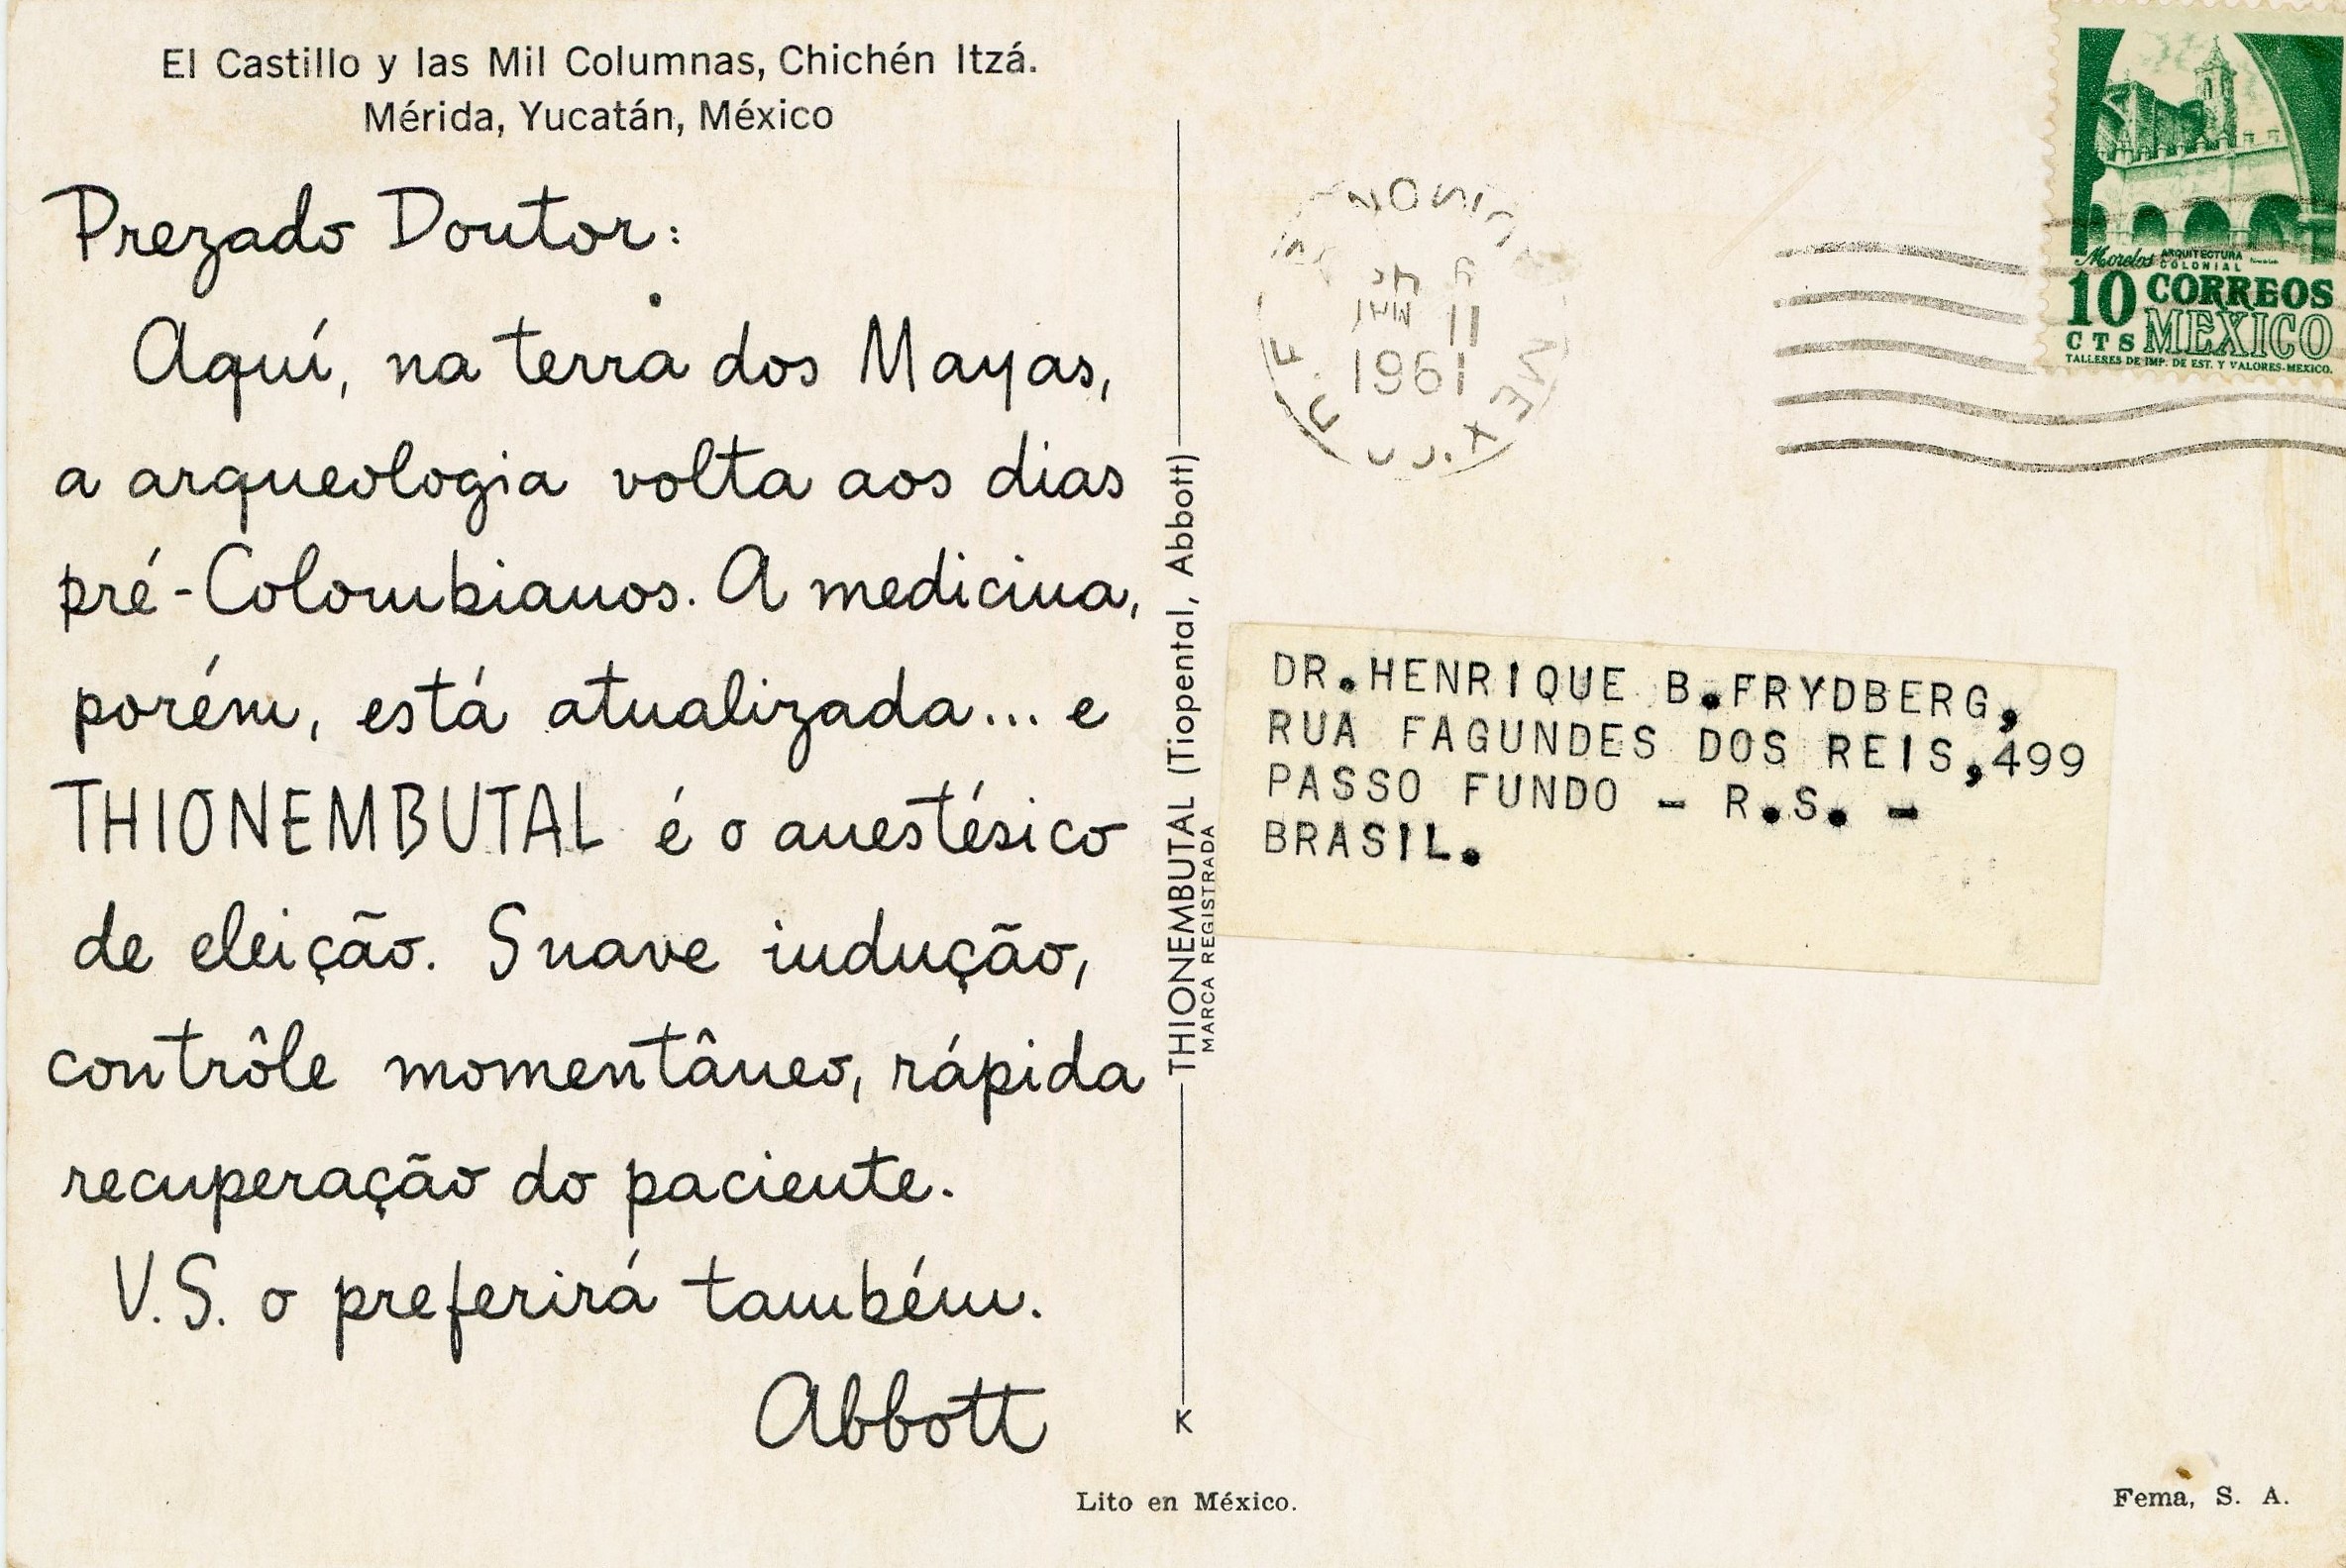 El Castillo y las Mil Columnas, Chichén Itzá.
Mérida, Yucatán, México
Prezado Doutor:
Aquí, na terra dos Mayas,
a arqueologia volta aos dias
pré-Colombianos. A medicina,
porém, está atualizada... e
THIONEMBUTAL é o anestésico
de eleição. Suave indução,
contrôle momentâneo, rápida
recuperação do paciente.
V.S. o preferirá também.
Abbott
THIONEMBUTAL (Tiopental, Abbott)
MARCA REGISTRADA
K
Lito en México.
JUN 11
1961
Morelos ARQUITECTURA
COLONIAL
10 CORREOS
CTS MEXICO
TALLERES DE IMP. DE EST. Y VALORES-MEXICO.
DR.HENRIQUE B.FRYDBERG,
RUA FAGUNDES DOS REIS,499
PASSO FUNDO - R.S. -
BRASIL.
Fema, S. A.